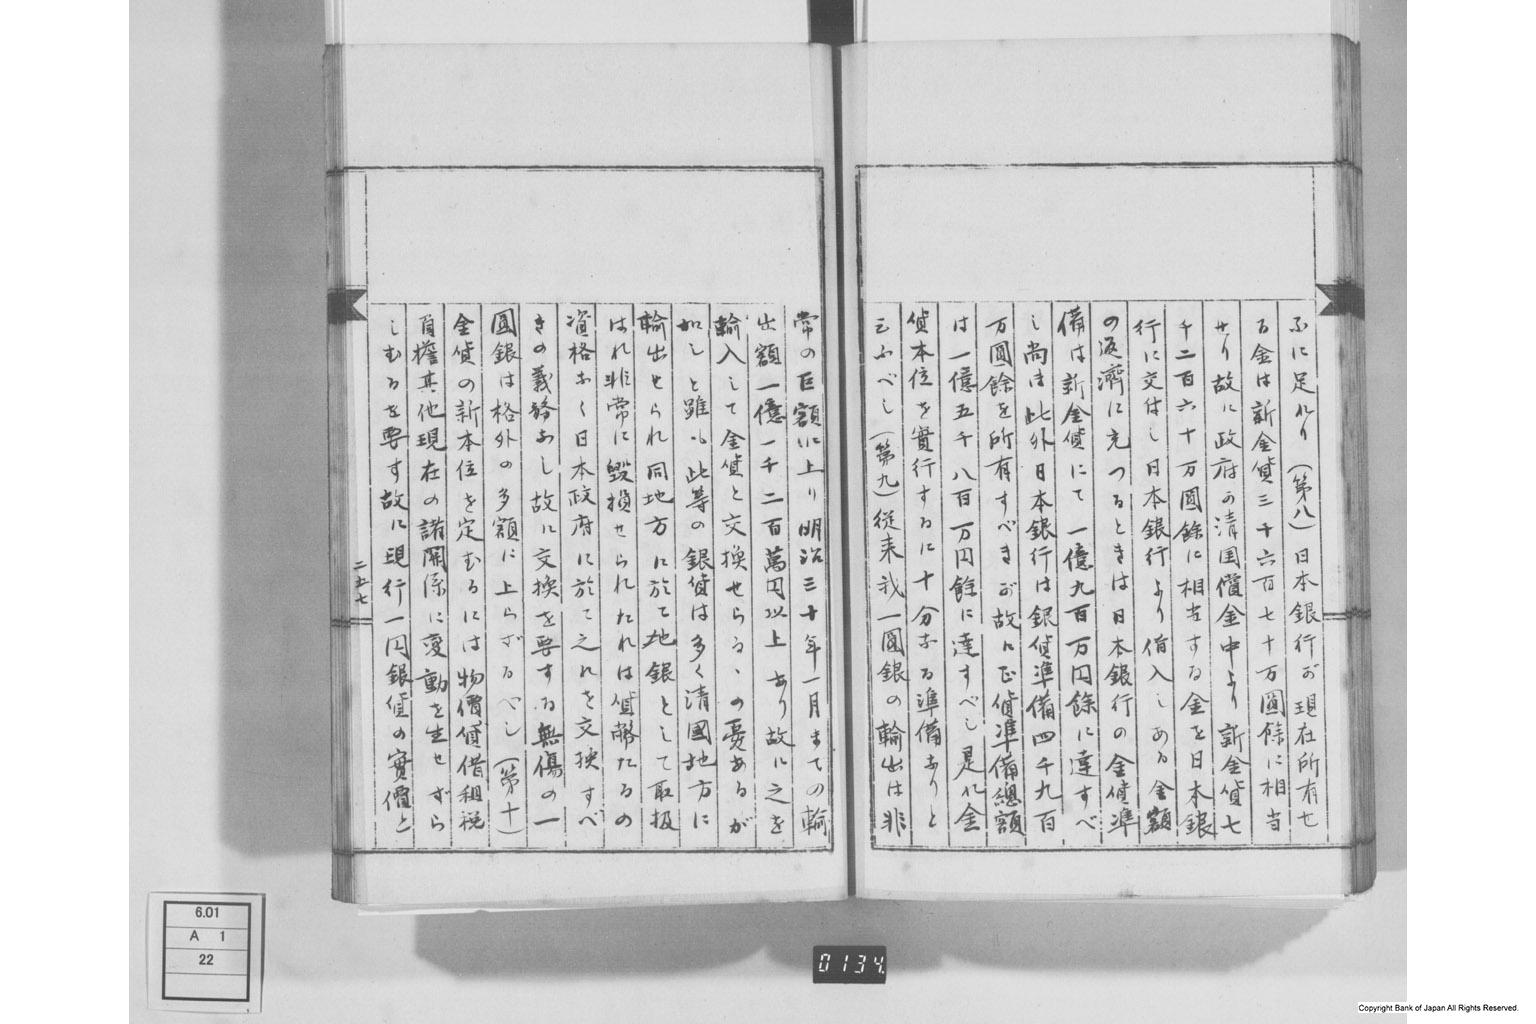 ふに足れり（第八）日本銀行が現在所有せ
る金は新金貨三千六百七十万圓餘に相当
せり故に政府の清国償金中より新金貨七
千二百六十万圓餘に相当する金を日本銀
行に交付し日本銀行より借入しある金額
の返濟に充つるときは日本銀行の金貨準
備は新金貨にて一億九百万円餘に達すべ
し尚ほ此外日本銀行は銀貨準備四千九百
万圓餘を所有すべきが故に正貨準備總額
は一億五千八百万円餘に達すべし是れ金
貨本位を實行するに十分なる準備なりと
云ふべし（第九）從来我一圓銀の輸出は非
常の巨額に上り明治三十年一月までの輸
出額一億一千二百萬円以上あり故に之を
輸入して金貨と交換せらるゝの憂あるが
如しと雖も此等の銀貨は多く清國地方に
輸出せられ同地方に於て地銀として取扱
はれ非常に毀損せられたれは貨幣たるの
資格なく日本政府に於て之れを交換すべ
きの義務なし故に交換を要する無傷の一
圓銀は格外の多額に上らざるべし（第十）
金貨の新本位を定むるには物價貸借租税
負擔其他現在の諸關係に変動を生せざら
しむるを要す故に現行一円銀貨の實價と
二五七
6.01
A 1
22
0134
Copyright Bank of Japan All Rights Reserved.